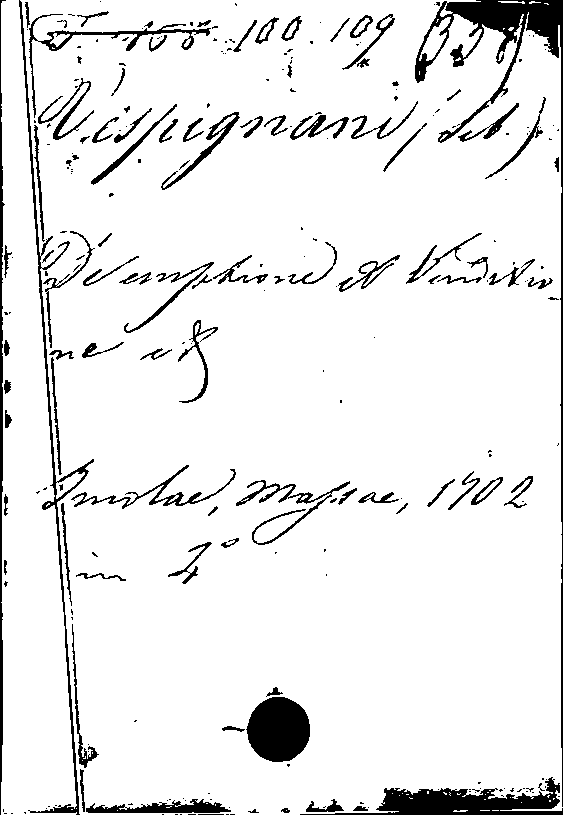 100. 109 (338)
Vespignani (Seb.)
De emptione et Venditio-
ne etc
Imolae, Massae, 1702
in 4°